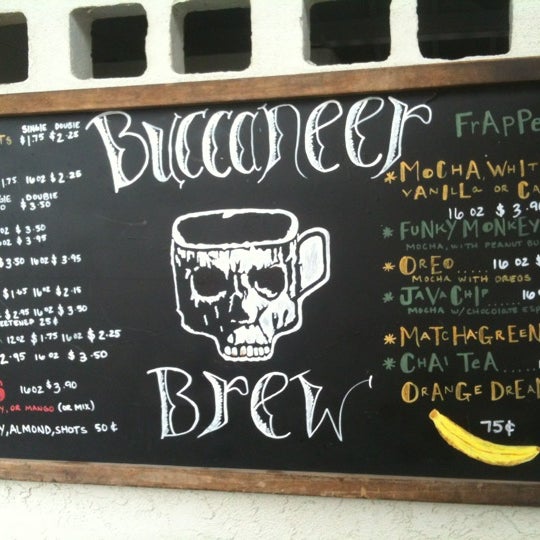 Buccaneer
Brew
SINGLE DOUBLE
$1.75 $2.25
1.75 16 OZ $2.25
DOUBLE
$3.50
OZ $3.50
OZ $3.95
$3.50 16 OZ $3.95
$1.65 16 OZ $2.15
16 OZ $3.50
25¢
12 OZ $1.75 16 OZ $2.25
2.95 16 OZ $3.50
16 OZ $3.90
OR MANGO (OR MIX)
ALMOND, SHOTS 50¢
FRAPPE
*MOCHA, WHIT
VANILLA OR CA
16 OZ $3.9
*FUNKY MONKEY
MOCHA, WITH PEANUT BU
*OREO..... 16 OZ $
MOCHA WITH OREOS
*JAVA CHIP..... 16
MOCHA W/CHOCOLATE ESP
*MATCHA GREEN
*CHAI TEA....
ORANGE DREA
75¢